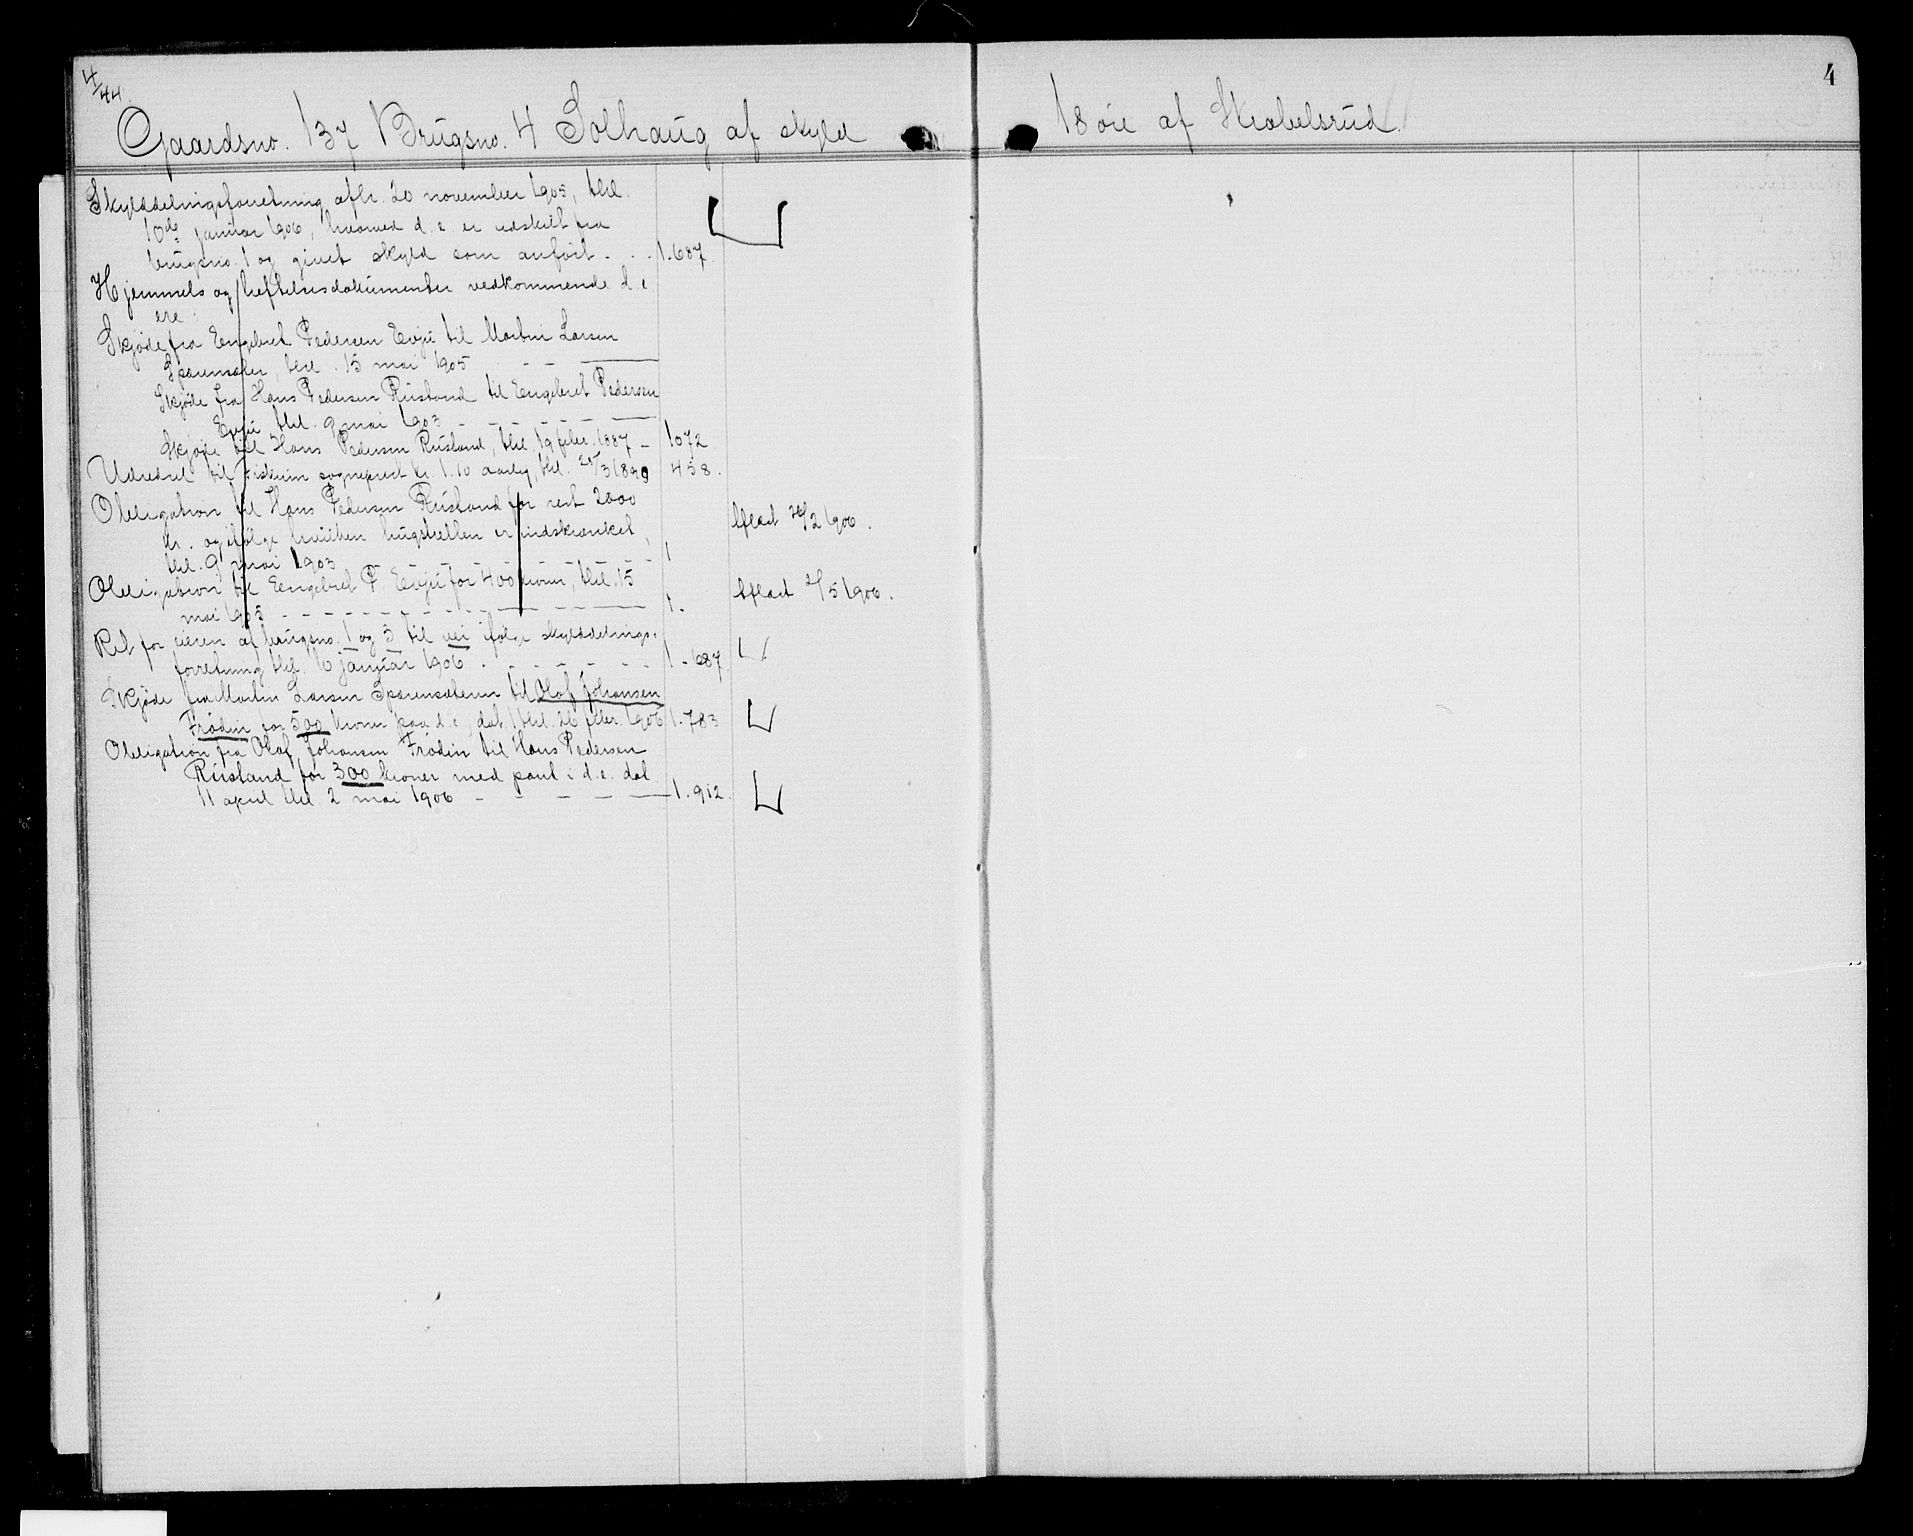 4/44
4
Gaardsno. 137 Brugsno. 4 Solhaug af skyld 18 øre af Skrabelsrud.
Skylddelingsforretning afh. 20 november 1905, thl.
10de januar 1906, hvorved d. e. er udskilt fra
brugsno. 1 og givet skyld som anført - . . 1.687.
Hjemmels og heftelsesdokumenter vedkommende d. e.
ere:
Skjøde fra Engebret Pedersen Evju til Martin Larsen
thl. 15 mai 1905 - -
Skjøde fra Hans Pedersen Rustand til Engebret Pedersen
Evju thl. 9 mai 1903 - - - - -
Skjøde til Hans Pedersen Rustand, thl. 19 febr. 1887 - 1072
Udredsel til Fiskum sogneprest kr. 1.10 aarlig, thl. 3 1890 458.
Obligation til Hans Pedersen Rustand for rest 2000
kr. og ifølge hvilken hugstretten er indskrænket, Aflæst 26/2 1906.
thl. 9 mai 1903 - - - - - - - 1
Obligation til Engebret P. Evju for 400 kroner, thl. 15 Aflæst 2/5 1906.
mai 1905 - - - - - - - - - 1.
Ret for eieren af brugsno. 1 og 3 til vei ifølge skylddelings-
forretning thl. 10 januar 1906 . - - - - 1.-687
Skjøde fra Martin Larsen til Olaf Johansen
Frødin for 500 kroner paa d. e., dat. thl. 26 febr. 1906 1.783
Obligation fra Olaf Johansen Frødin til Hans Pedersen
Rustand for 300 kroner med pant i d. e. dat.
11 april thl. 2 mai 1906 - - - - - 1.912.